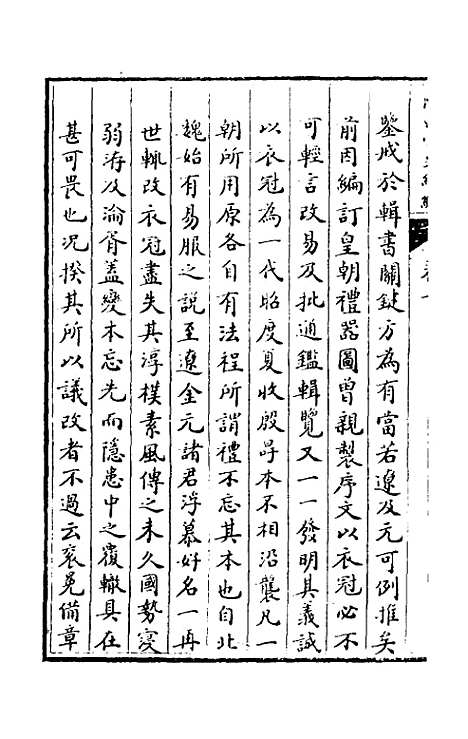 鑒戒於輯書關鍵方為有當若遼及元可例推矣
前因編訂皇朝禮器圖曾親製序文以衣冠必不
可輕言改易及批通鑑輯覽又一一發明其義誠
以衣冠為一代昭度夏收殷冔本不相沿襲凡一
朝所用原各自有法程所謂禮不忘其本也自北
魏始有易服之說至遼金元諸君浮慕好名一再
世輒改衣冠盡失其淳樸素風傳之未久國勢寖
弱洊及淪胥蓋變本忘先而隱患中之覆轍具在
甚可畏也況揆其所以議改者不過云袞冕備章